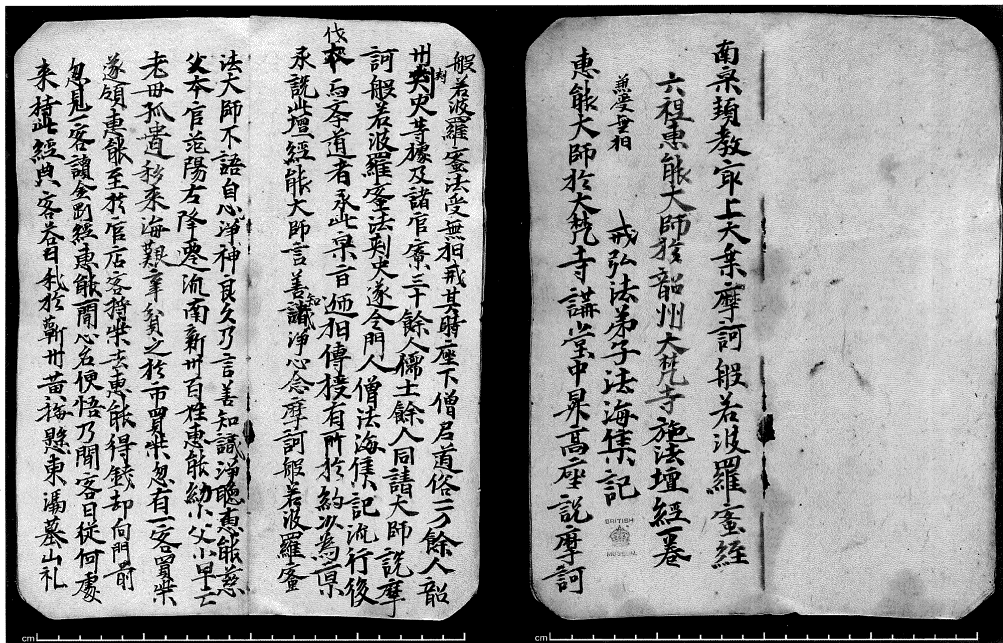 南宗頓教冣上大乗摩訶般若波羅蜜經
六祖惠能大師於韶州大梵寺施法壇經一卷
兼受無相
戒弘法弟子法海集記
惠能大師於大梵寺講堂中昇高座說摩訶
BRITISH
MUSEUM
般若波羅蜜法受無相戒其時座下僧尼道俗一万餘人韶
州刺史等據及諸官寮三十餘人儒士餘人同請大師說摩
訶般若波羅蜜法刾史遂令門人僧法海集記流行後
伐与斈道者承此宗旨逓相傳授有所於約以為禀
承說此壇經能大師言善知識淨心念摩訶般若波羅蜜
法大師不語自心淨神良久乃言善知識淨聽惠能慈
父本官范陽左降遷流南新州百姓惠能幼小父小早亡
老母孤遺移来海艱辛貧之於市買柴忽有一客買柴
遂領惠能至於官店客將柴去惠能得錢却向門前
忽見一客讀金剛經惠能一聞心名便悟乃聞客曰從何處
来持此經典客荅曰我於蘄州黃梅懸東馮墓山礼
cm
cm